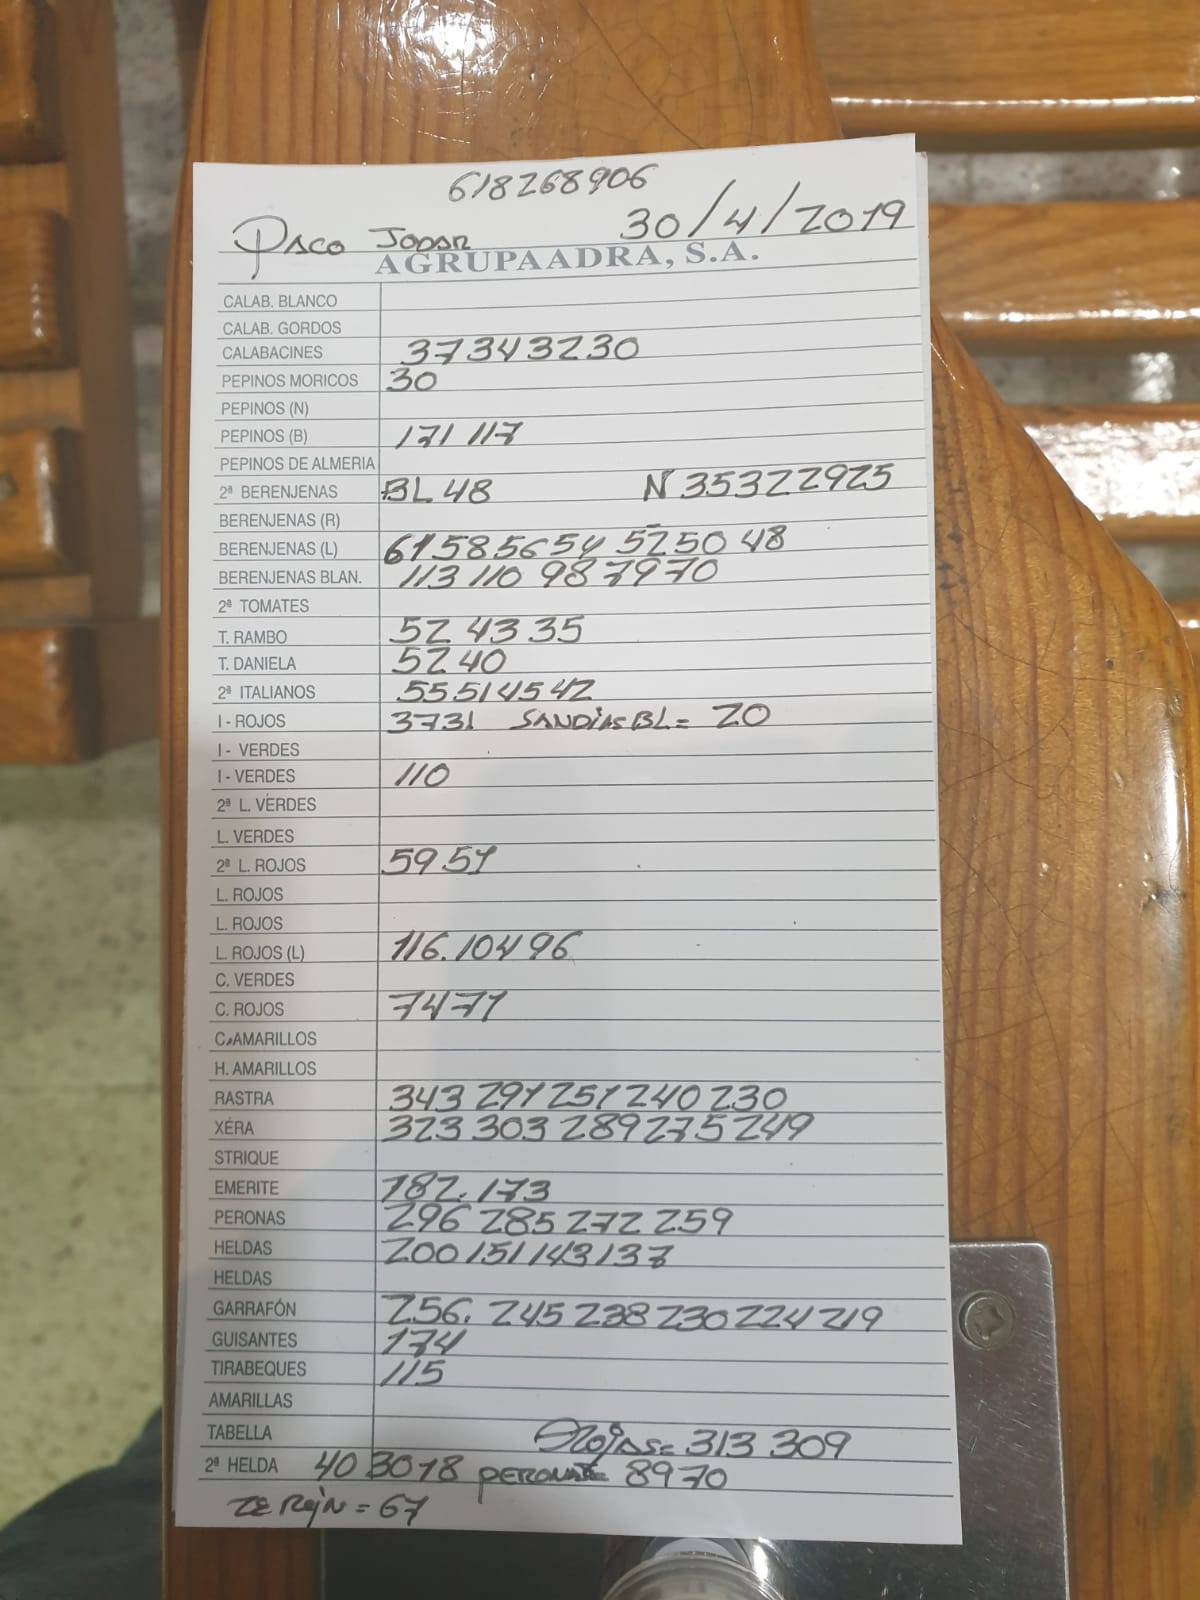 618268906
Paco Jodar 30/4/2019
AGRUPAADRA, S.A.
CALAB. BLANCO
CALAB. GORDOS
CALABACINES 37 34 32 30
PEPINOS MORICOS 30
PEPINOS (N)
PEPINOS (B) 121 117
PEPINOS DE ALMERIA
2ª BERENJENAS BL 48 N 35 32 29 25
BERENJENAS (R)
BERENJENAS (L) 61 58 56 54 52 50 48
BERENJENAS BLAN. 113 110 98 79 70
2ª TOMATES
T. RAMBO 52 43 35
T. DANIELA 52 40
2ª ITALIANOS 55 51 45 42
I - ROJOS 37 31 SANDÍAS BL = 20
I - VERDES
I - VERDES 110
2ª L. VERDES
L. VERDES
2ª L. ROJOS 59 51
L. ROJOS
L. ROJOS
L. ROJOS (L) 116. 104 96
C. VERDES
C. ROJOS 74 71
C. AMARILLOS
H. AMARILLOS
RASTRA 343 291 251 240 230
XÉRA 323 303 289 275 249
STRIQUE
EMERITE 182. 173
PERONAS 296 285 272 259
HELDAS 200 151 143 137
HELDAS
GARRAFÓN 256. 245 238 230 224 219
GUISANTES 174
TIRABEQUES 115
AMARILLAS
TABELLA ROJAS = 313 309
2ª HELDA 40 30 18 PERONA = 89 70
= 67